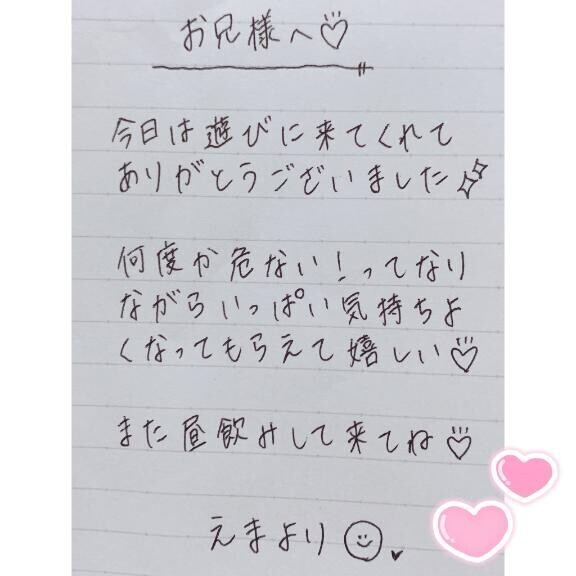 お兄様へ♡
今日は遊びに来てくれて
ありがとうございました
何度か危ない!ってなり
ながらいっぱい気持ちよ
くなってもらえて嬉しい♡
また昼飲みして来てね♡
えまより